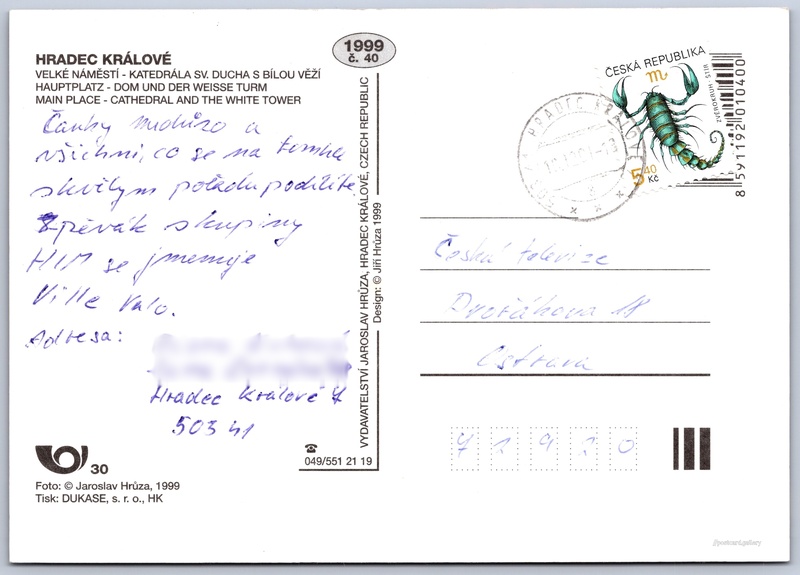 HRADEC KRÁLOVÉ
VELKÉ NÁMĚSTÍ - KATEDRÁLA SV. DUCHA S BÍLOU VĚŽÍ
HAUPTPLATZ - DOM UND DER WEISSE TURM
MAIN PLACE - CATHEDRAL AND THE WHITE TOWER
Čauky Medůzo a
všichni, co se na tomhle
skvělým pořadu podílíte.
Zpěvák skupiny
HIM se jmenuje
Ville Valo.
Adresa:
Hradec Králové 7
503 41
30
Foto: © Jaroslav Hrůza, 1999
Tisk: DUKASE, s. r. o., HK
1999
č. 40
VYDAVATELSTVÍ JAROSLAV HRŮZA, HRADEC KRÁLOVÉ, CZECH REPUBLIC
Design: © Jiří Hrůza 1999
☎
049/551 21 19
ČESKÁ REPUBLIKA
ZVĚROKRUH - ŠTÍR
5,40 Kč
8 591192 010400
HRADEC KRÁLOVÉ
Česká televize
Dvořákova 18
Ostrava
7 2 9 2 0